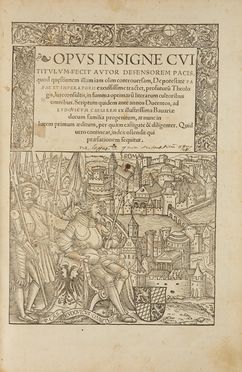 OPVS INSIGNE CVI
TITVLVM FECIT AVTOR DEFENSOREM PACIS,
quod quęstionem illam iam olim controuersam, De potestate PA
PAE ET IMPERATORIS excussissime tractet, profuturum Theolo
gis, Iureconsultis, in summa optimarū literarum cultoribus
omnibus. Scriptum quidem ante annos Ducentos, ad
LVDOVICVM CAESAREM ex illustrissima Bauariæ
ducum familia progenitum, at nunc in
lucem primum ædítum, per quàm castigate & diligenter. Quid
uero contineat, index ostendit qui
præfationem sequitur.
ROMA